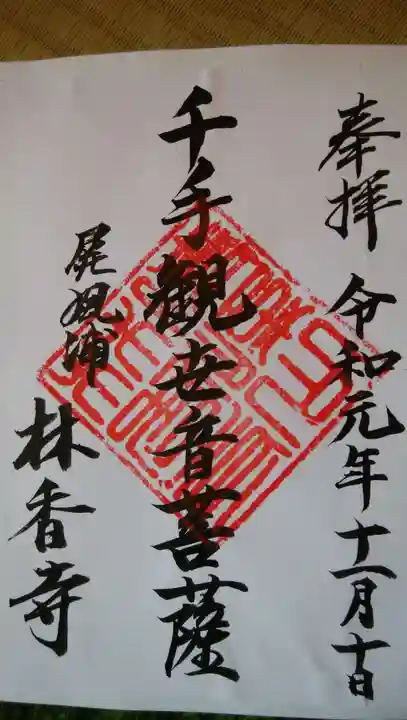 奉拝 令和元年十一月十日
千手観世音菩薩
林香寺